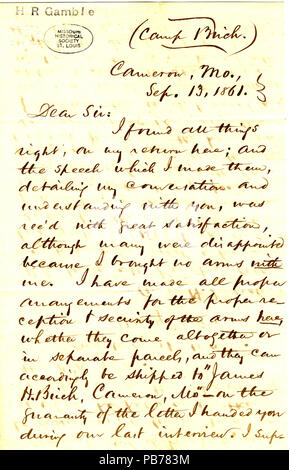 H R Gamble
MISSOURI
HISTORICAL
SOCIETY
ST. LOUIS
(Camp Birch.)
Cameron, Mo.,
Sep. 13, 1861.
Dear Sir:
I found all things
right, on my return here; and
the speech which I made them,
detailing my conversation and
understanding with you, was
rec'd with great satisfaction,
although many were disappointed
because I brought no arms with
me. I have made all proper
arrangements for the proper re-
ception & security of the arms here,
whether they come altogether or
in separate parcels, and they can
accordingly be shipped to "James
H. Birch, Cameron, Mo" - on the
guaranty of the letter I handed you
during our last interview. I sup-
alamy
PB783M